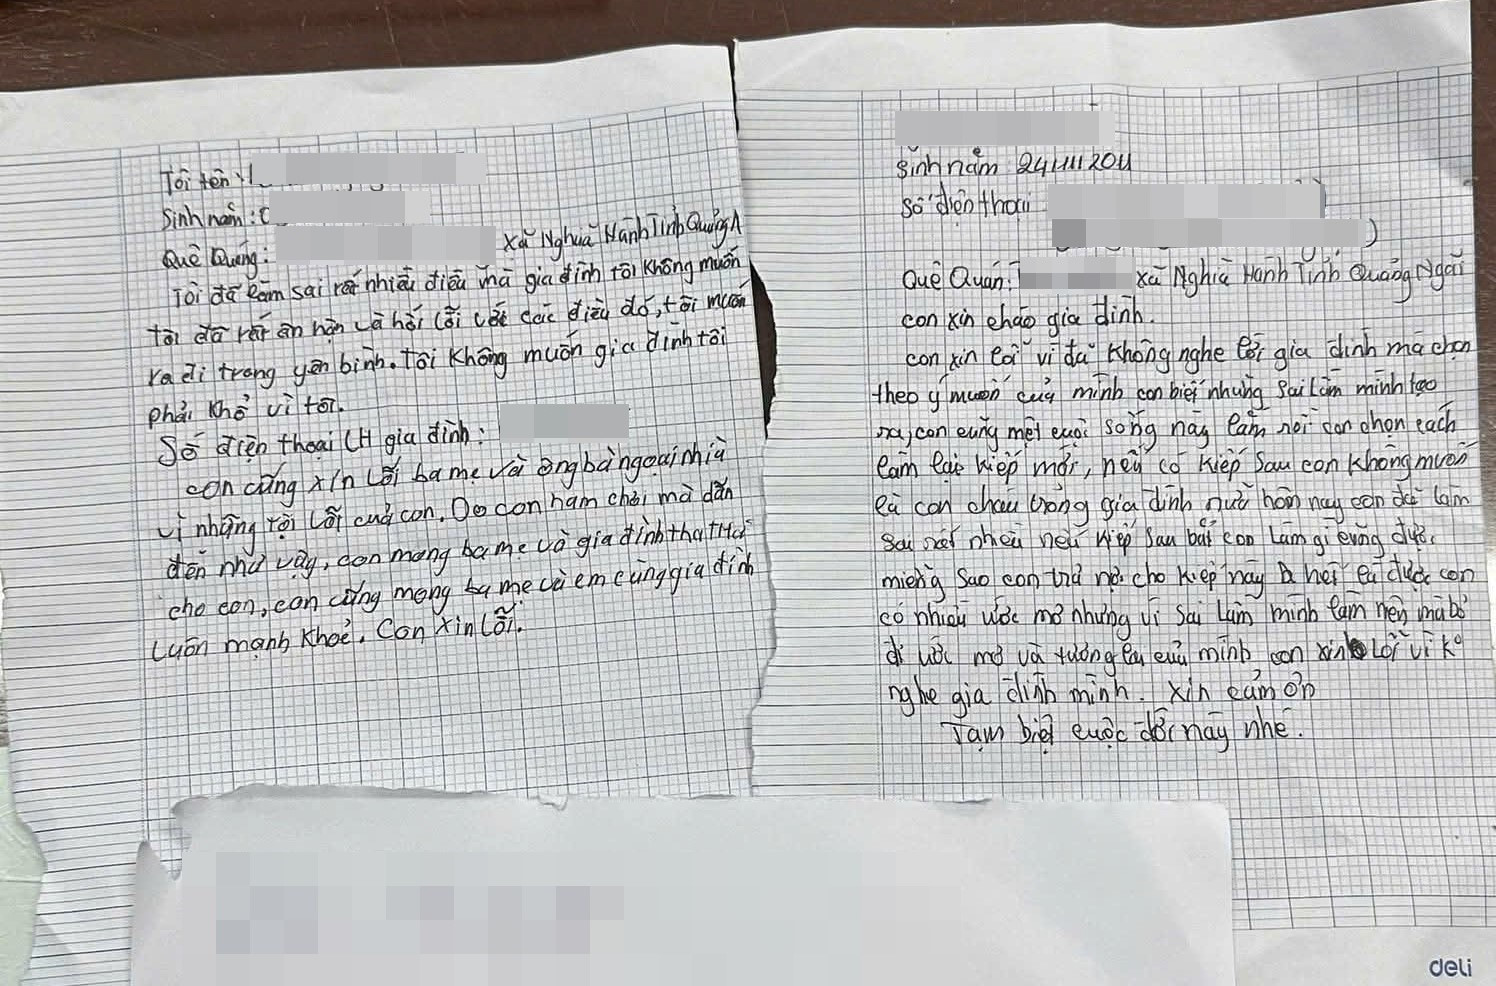 Tôi tên:
Sinh năm:
Quê Quáng: xã Nghĩa Hành Tỉnh Quảng
Tôi đã làm sai rất nhiều điều mà gia đình tôi không muốn
tôi đã rất ân hận và hối lỗi với các điều đó, tôi muốn
ra đi trong yên bình. Tôi không muốn gia đình tôi
phải khổ vì tôi.
Số điện thoại LH gia đình:
con cũng xin lỗi ba mẹ và ông bà ngoại nhiều
vì những tội lỗi của con. Do con ham chơi mà dẫn
đến như vậy, con mong ba mẹ và gia đình tha thứ
cho con, con cũng mong ba mẹ và em cùng gia đình
luôn mạnh khoẻ. Con xin lỗi.
Sinh năm 24/11/2011
Số điện thoại
Quê Quán: xã Nghĩa Hành Tỉnh Quảng Ngãi
con xin chào gia đình.
con xin lỗi vì đã không nghe lời gia đình mà chọn
theo ý muốn của mình con biết những sai lầm mình tạo
ra, con cũng mệt cuội sống này lắm rồi con chọn cách
làm lại kiếp mới, nếu có kiếp sau con không muốn
là con cháu trong gia đình nưữ hôm nay con đã làm
sai rất nhiều nếu kiếp sau bắt con làm gì cũng được
miễng sao con trả nợ cho kiếp này hết là được con
có nhiều ước mơ nhưng vì sai lầm mình làm nên mà bỏ
đi ước mơ và tương lai của mình con xin lỗi vì ko
nghe gia đình mình. xin cảm ơn
Tạm biệt cuộc đời này nhé.
deli